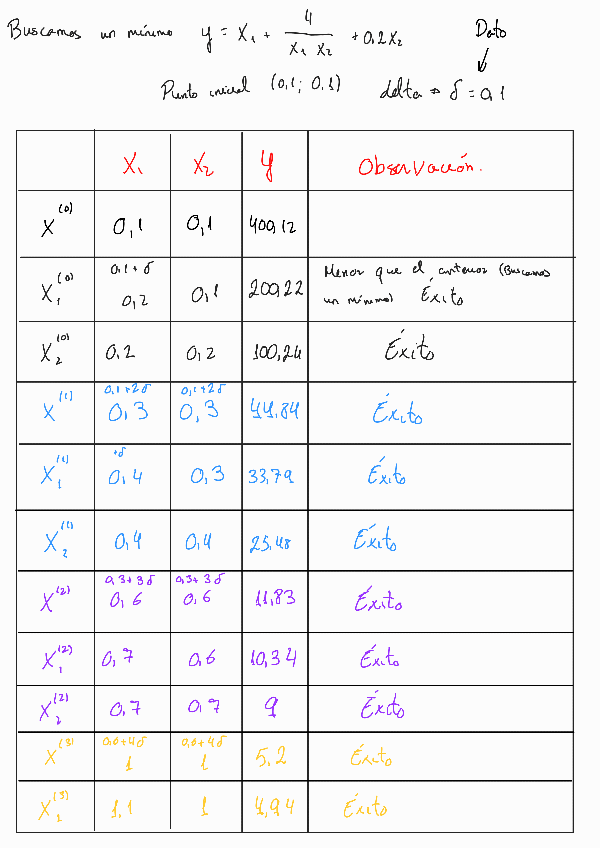 Buscamos un mínimo y = x₁ + 4 / (x₁ x₂) + 0,2x₂ Dato
Punto inicial (0,1; 0,1) delta → δ = 0,1
x₁ x₂ y Observación.
x⁽⁰⁾ 0,1 0,1 400,12
0,1+δ
x₁⁽⁰⁾ 0,2 0,1 200,22 Menor que el anterior (Buscamos
un mínimo) Éxito
x₂⁽⁰⁾ 0,2 0,2 100,24 Éxito
0,1+2δ 0,1+2δ
x⁽¹⁾ 0,3 0,3 44,84 Éxito
+δ
x₁⁽¹⁾ 0,4 0,3 33,79 Éxito
x₂⁽¹⁾ 0,4 0,4 25,48 Éxito
0,3+3δ 0,3+3δ
x⁽²⁾ 0,6 0,6 11,83 Éxito
x₁⁽²⁾ 0,7 0,6 10,34 Éxito
x₂⁽²⁾ 0,7 0,7 9 Éxito
0,6+4δ 0,6+4δ
x⁽³⁾ 1 1 5,2 Éxito
x₁⁽³⁾ 1,1 1 4,94 Éxito